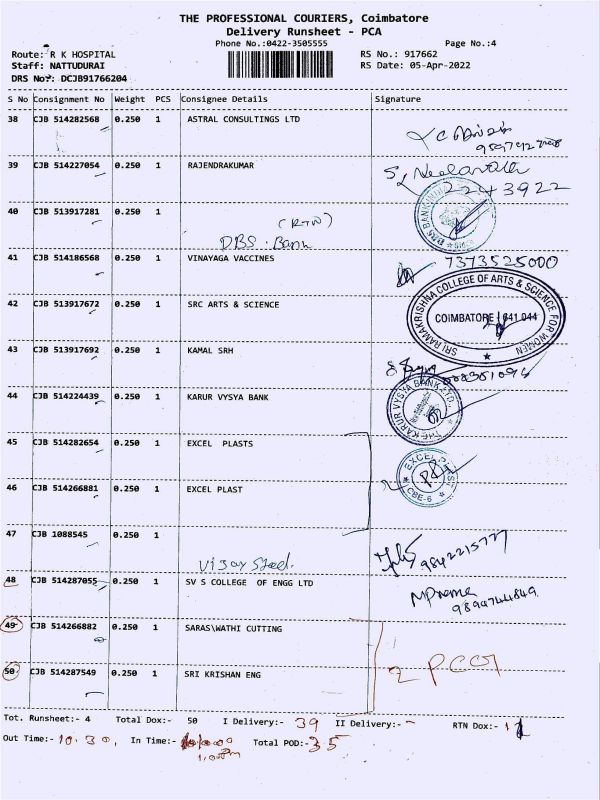 THE PROFESSIONAL COURIERS, Coimbatore
Delivery Runsheet - PCA
Phone No.:0422-3505555
Page No.:4
Route: R K HOSPITAL
RS No.: 917662
Staff: NATTUDURAI
RS Date: 05-Apr-2022
DRS No?: DCJB91766204
S No Consignment No Weight PCS Consignee Details Signature
38 CJB 514282568 0.250 1 ASTRAL CONSULTINGS LTD
39 CJB 514227054 0.250 1 RAJENDRAKUMAR
2243922
40 CJB 513917281 0.250 1
(RTN)
DBS Bank
41 CJB 514186568 0.250 1 VINAYAGA VACCINES
7373525000
42 CJB 513917672 0.250 1 SRC ARTS & SCIENCE
SRI RAMAKRISHNA COLLEGE OF ARTS & SCIENCE FOR WOMEN
COIMBATORE 641 044
43 CJB 513917692 0.250 1 KAMAL SRH
44 CJB 514224439 0.250 1 KARUR VYSYA BANK
THE KARUR VYSYA BANK LTD.
45 CJB 514282654 0.250 1 EXCEL PLASTS
EXCEL PLAST
CBE-6
46 CJB 514266881 0.250 1 EXCEL PLAST
47 CJB 1088545 0.250 1
Vijay Steel
9842215777
48 CJB 514287055 0.250 1 SV S COLLEGE OF ENGG LTD
MPrema
9894744849
49 CJB 514266882 0.250 1 SARAS\WATHI CUTTING
50 CJB 514287549 0.250 1 SRI KRISHAN ENG
Tot. Runsheet:- 4 Total Dox:- 50 I Delivery:- 39 II Delivery:- - RTN Dox:- 11
Out Time:- 10.30, In Time:- Total POD:- 35